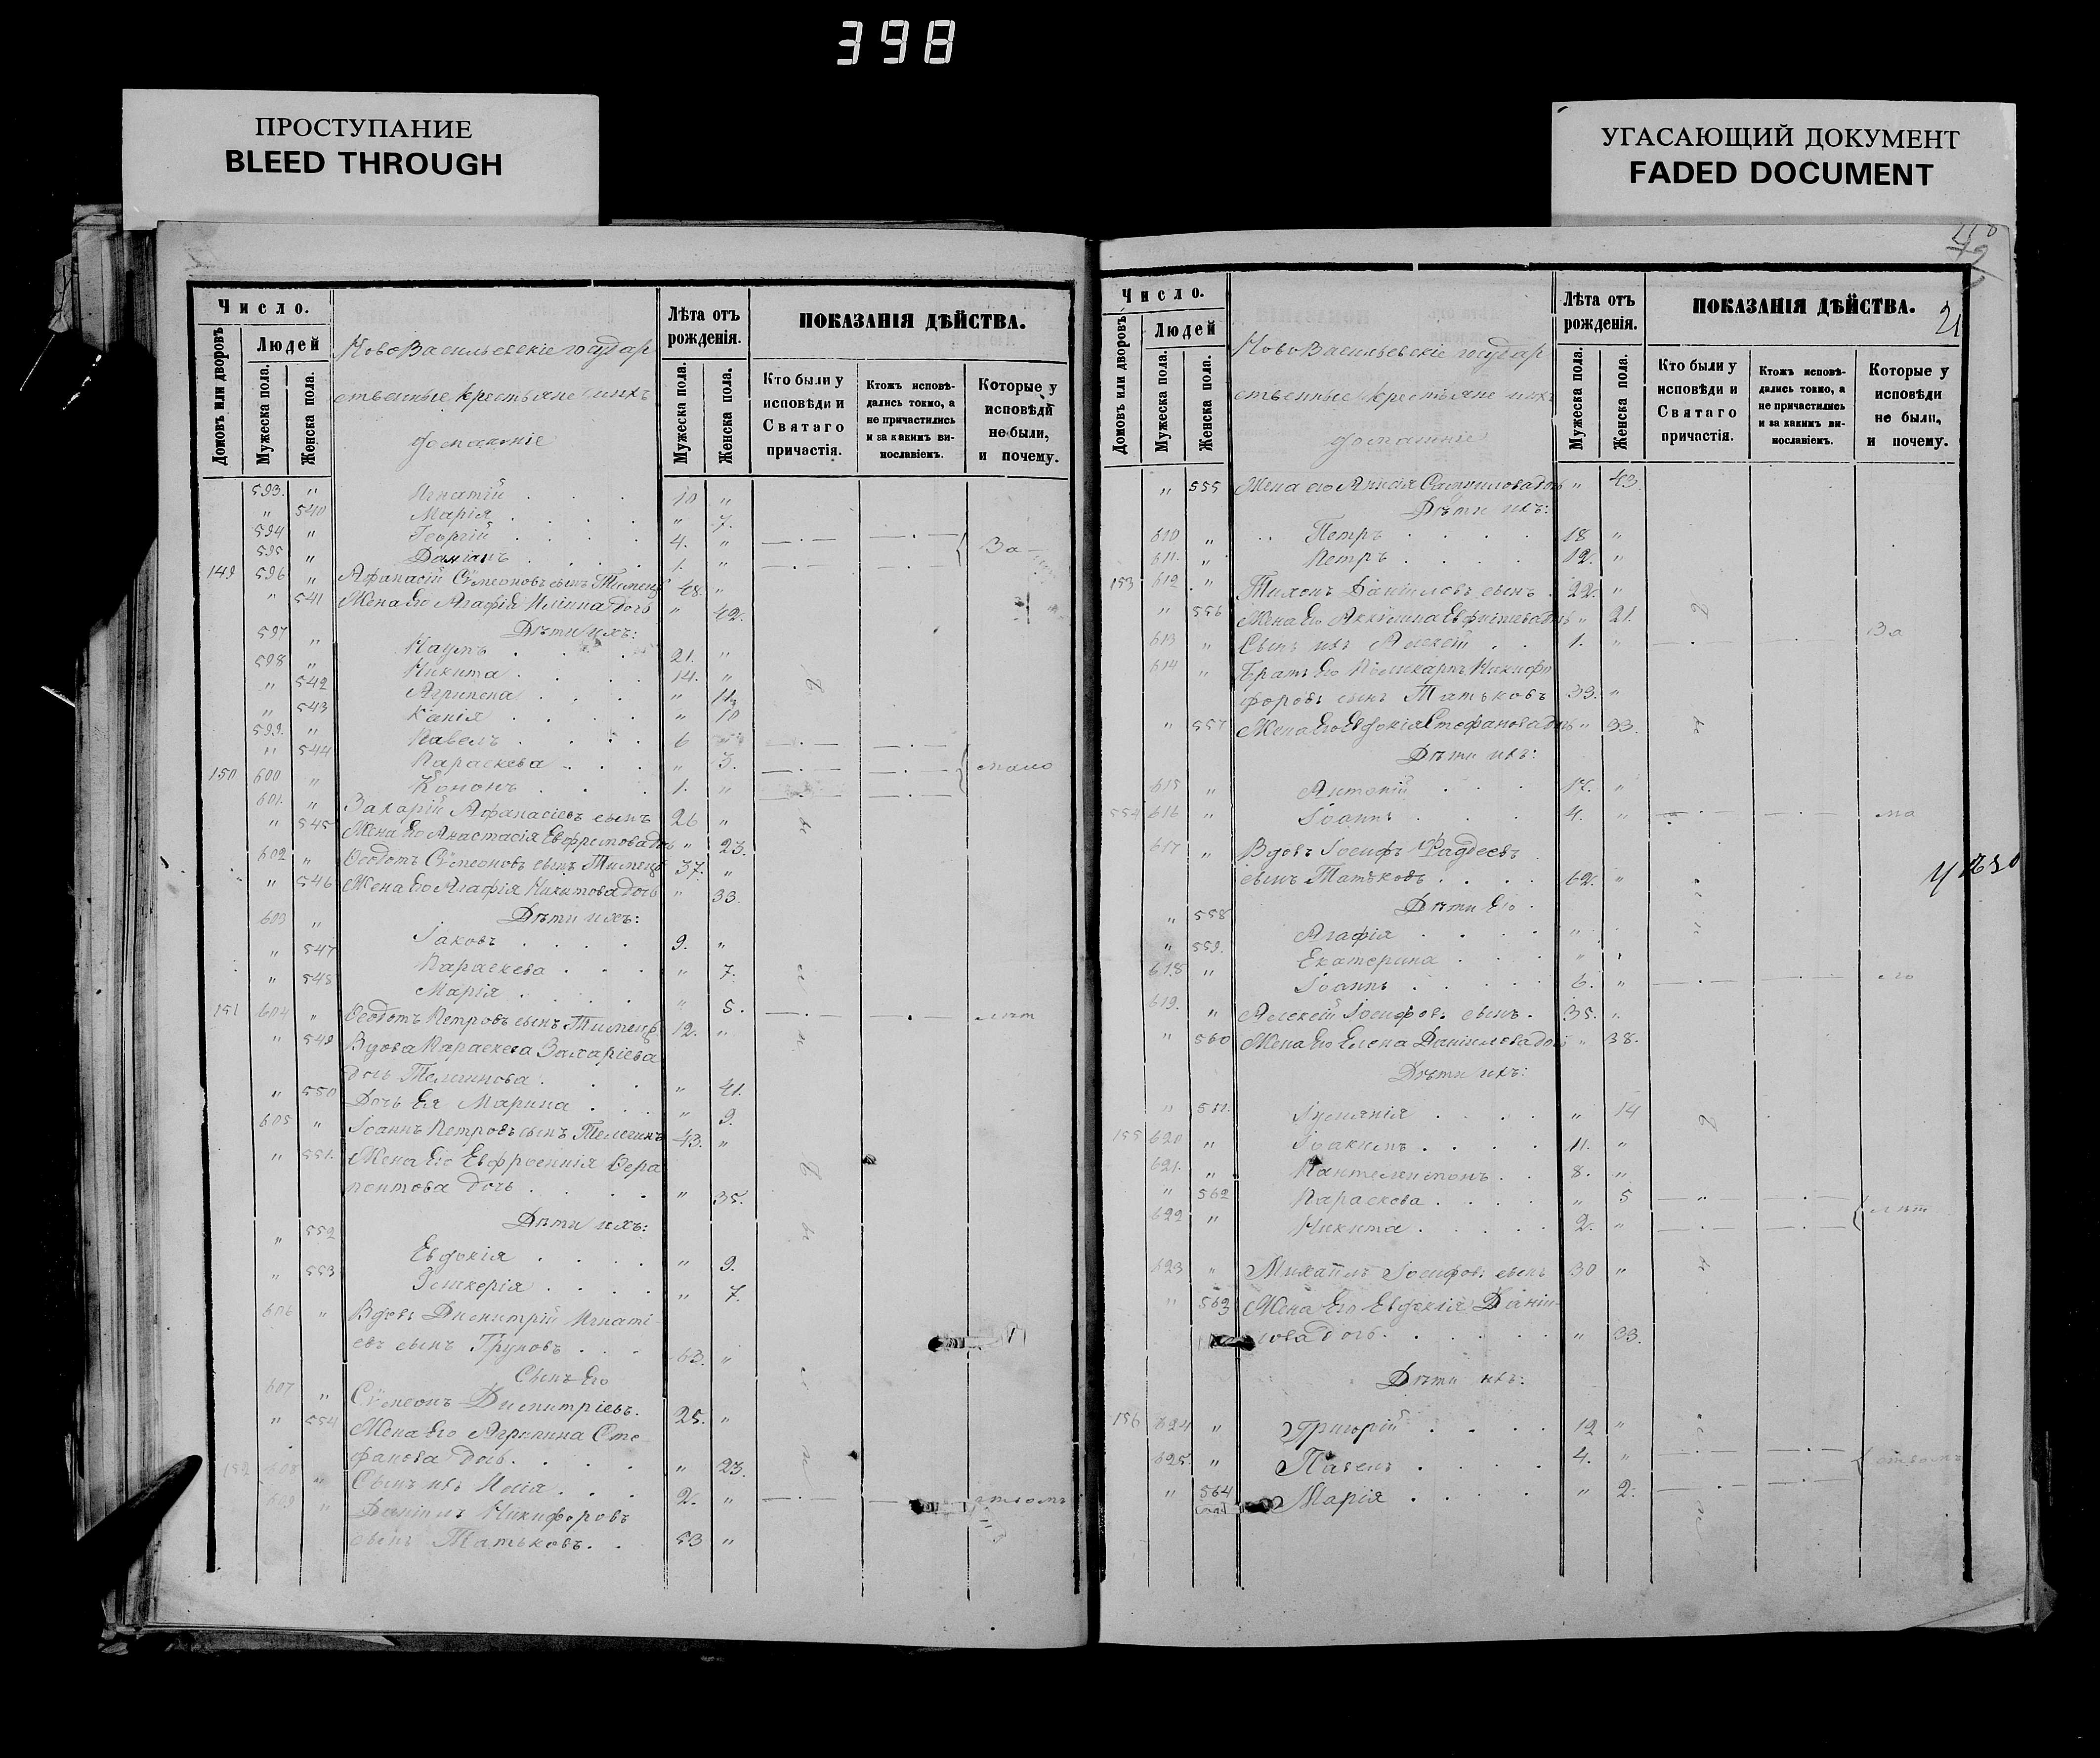 398
ПРОСТУПАНИЕ
BLEED THROUGH
УГАСАЮЩИЙ ДОКУМЕНТ
FADED DOCUMENT
Число.
Домовъ или дворовъ
Людей
Мужеска пола.
Женска пола.
НовоВасильевскіе государ
ственные крестьяне ихъ
домашніе
Лѣта отъ рожденія.
Мужеска пола.
Женска пола.
ПОКАЗАНІЯ ДѢЙСТВА.
Кто были у исповѣди и Святаго причастія.
Ктожъ исповѣдались токмо, а не причастились и за какимъ винославіемъ.
Которые у исповѣди не были, и почему.
593. " Игнатій 10 "
" 540 Марія " 7.
594 " Георгій 4. "
595 " Даміанъ 1. " За
149 596 " Афанасій Сѵмеоновъ сынъ 48. "
" 541 Жена Его Агафія Иліина дочь " 42.
Дѣти ихъ:
597 " Наумъ 21. "
598 " Никита 14. "
" 542 Агрипена "
" 543 " 10
599. " Павелъ 6
" 544 Параскева " 3. мало
150 600 " Кононъ 1. "
601. " Захарій Афанасіевъ сынъ 26 "
" 545 Жена Его Анастасія " 23.
602 " Ѳеодотъ Сѵмеоновъ сынъ 37. "
" 546 Жена Его Агафія Никитова дочь " 33.
Дѣти ихъ:
603 " Іаковъ 9. "
" 547 Параскева " 7.
" 548 Марія " 5. лѣт
151 604 " Ѳеодотъ Петровъ сынъ 12. "
" 549 Вдова Параскева Захаріева
дочь Телегинова " 41.
" 550 Дочь Ея Марина " 9.
605 " Іоаннъ Петровъ сынъ Телегинъ 43. "
" 551. Жена Его Евфросинія Ѳера
понтова дочь " 35.
Дѣти ихъ:
" 552 Евдокія " 9.
" 553 Гликерія " 7.
606 " Вдовъ Димитрій Игнаті
евъ сынъ Труновъ 63. "
Сынъ Его
607 " Сѵмеонъ Димитріевъ. 25. "
" 554 Жена Его Агрипина Сте
фанова дочь. " 23.
152 608 " Сынъ ихъ Илія 2. "
609 " Даніилъ Никифоровъ
сынъ Татьковъ. 53 "
118
21
Число.
Домовъ или дворовъ
Людей
Мужеска пола.
Женска пола.
НовоВасильевскіе государ
ственные крестьяне ихъ
домашніе
Лѣта отъ рожденія.
Мужеска пола.
Женска пола.
ПОКАЗАНІЯ ДѢЙСТВА.
Кто были у исповѣди и Святаго причастія.
Ктожъ исповѣдались токмо, а не причастились и за какимъ винославіемъ.
Которые у исповѣди не были, и почему.
" 555 Жена его Анисія Самуилова дочь " 43.
Дѣти ихъ:
610 " Петръ 18 "
611. " Петръ 12. "
153 612 " Тихонъ Даніиловъ сынъ 22. "
" 556 Жена Его Акилина " 21.
613 " Сынъ ихъ Алексій 1. " За
614 " Братъ Его Поликарпъ Никифо
форовъ сынъ Татьковъ 33. "
" 557 Жена Его Евдокія Стефанова дочь " 33.
Дѣти ихъ:
615 " Антоній "
554 616 " Іоаннъ 4. " ма
617 " Вдовъ Іосифъ Фаддеевъ
сынъ Татьковъ 62. "
Дѣти Его
" 558 Агафія "
" 559. Екатерина "
618 " Іоаннъ 6. " ло
619. " Алексій Іосифовъ сынъ. 35. "
" 560 Жена Его Елена Даніилова дочь " 38.
Дѣти ихъ:
" 561. Іуліанія " 14
155 620 " Іоакимъ 11. "
621. " Пантелеимонъ 8. "
" 562 Параскева " 5
622 " Никита 2. " лѣт
623 " Михаилъ Іосифовъ сынъ 30 "
" 563 Жена Его Евдокія Даніи
лова дочь. " 33.
Дѣти ихъ:
156 624 " Григорій 12 "
625. " Павелъ 4. "
" 564 Марія " 2.